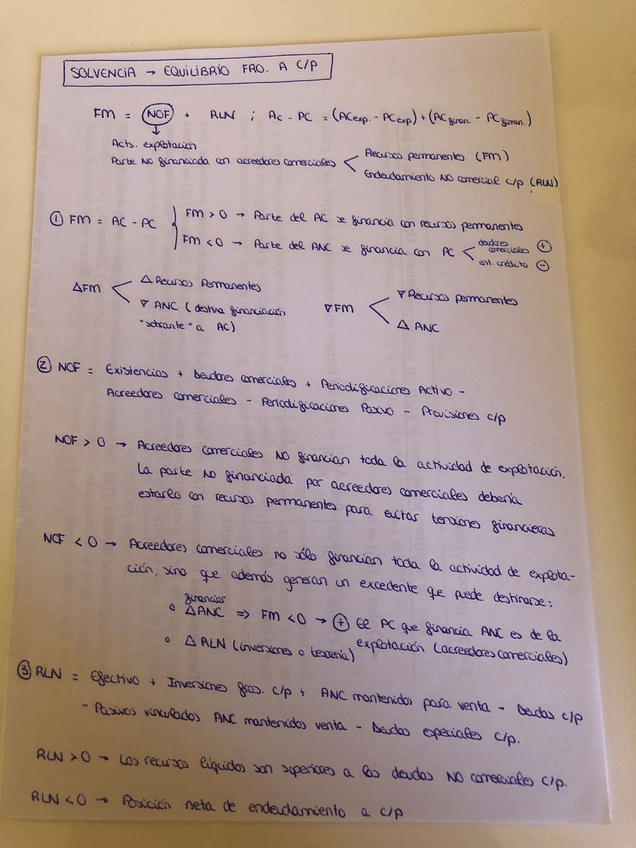 SOLVENCIA → EQUILIBRIO FRO. A C/P
FM = NOF + RLN ; AC - PC = (ACexp. - PCexp) + (ACfinan. - PCfinan.)
↓
Acts. explotación
Parte NO financiada con acreedores comerciales < Recursos permanentes (FM)
Endeudamiento NO comercial c/p (RLN)
① FM = AC - PC { FM > 0 → Parte del AC se financia con recursos permanentes
FM < 0 → Parte del ANC se financia con PC < deudores comerciales (+)
ent. crédito (-)
△FM < △ Recursos Permanentes
▽ ANC (destina financiación "sobrante" a AC)
▽FM < ▽ Recursos permanentes
△ ANC
② NOF = Existencias + Deudores comerciales + Periodificaciones Activo -
Acreedores comerciales - Periodificaciones Pasivo - Provisiones c/p
NOF > 0 → Acreedores comerciales NO financian toda la actividad de explotación.
La parte NO financiada por acreedores comerciales debería
estarlo con recursos permanentes para evitar tensiones financieras
NOF < 0 → Acreedores comerciales no sólo financian toda la actividad de explota-
ción, sino que además generan un excedente que puede destinarse:
financiar
o △ANC => FM < 0 → (+) EE PC que financia ANC es de la
explotación (acreedores comerciales)
o △ RLN (inversiones o tesorería)
③ RLN = Efectivo + Inversiones fras. c/p + ANC mantenidos para venta - Deudas c/p
- Pasivos vinculados ANC mantenidos venta - Deudas especiales c/p.
RLN > 0 → Los recursos líquidos son superiores a las deudas NO comerciales c/p.
RLN < 0 → Posición neta de endeudamiento a c/p